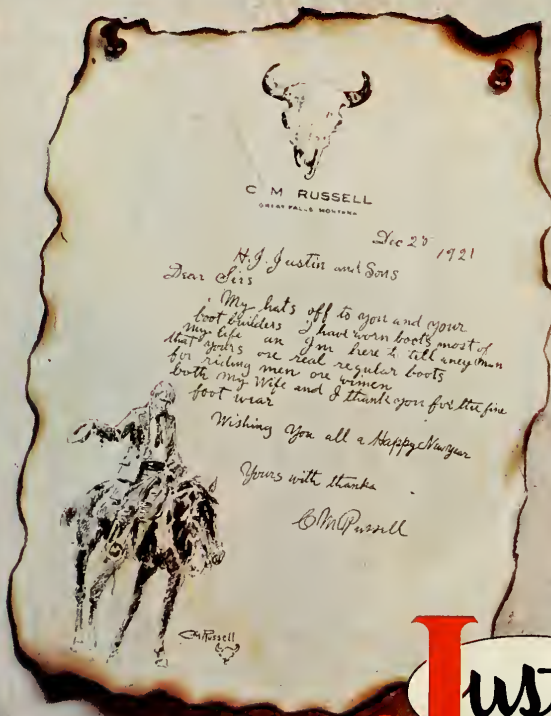 C M RUSSELL
GREAT FALLS MONTANA
Dec 25 1921
H.J. Justin and Sons
Dear Sirs
My hats off to you and your
boot builders I have worn boots most of
my life an Im here to tell aney man
that yours are real regular boots
for riding men ore wimen
both my Wife and I thank you for the fine
foot wear
Wishing You all a Happy New year
Yours with thanks
C M Russell
CM Russell
Jus